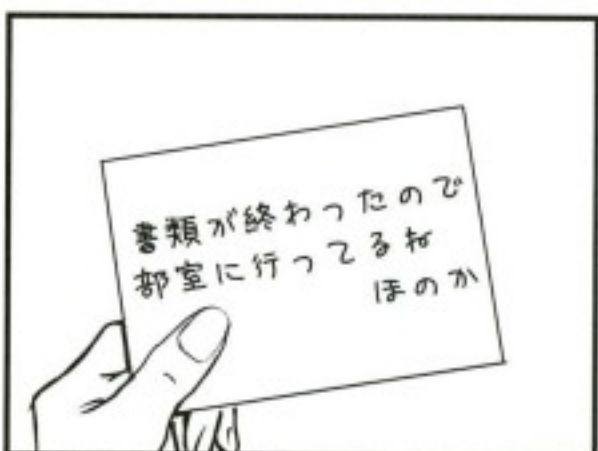 書類が終わったので
部室に行ってるね
ほのか